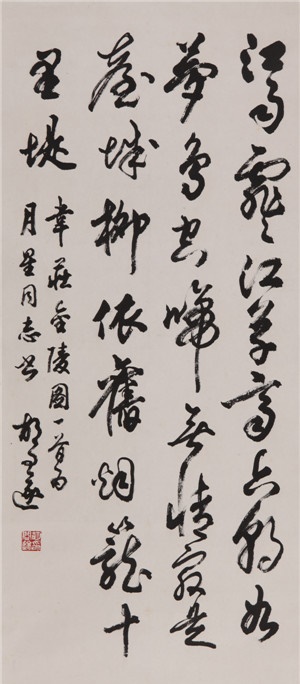 江雨霏霏江草齊六朝如
夢鳥空啼無情最是
臺城柳依舊烟籠十
里堤
韋莊金陵圖一首为
月星同志书 胡问遂